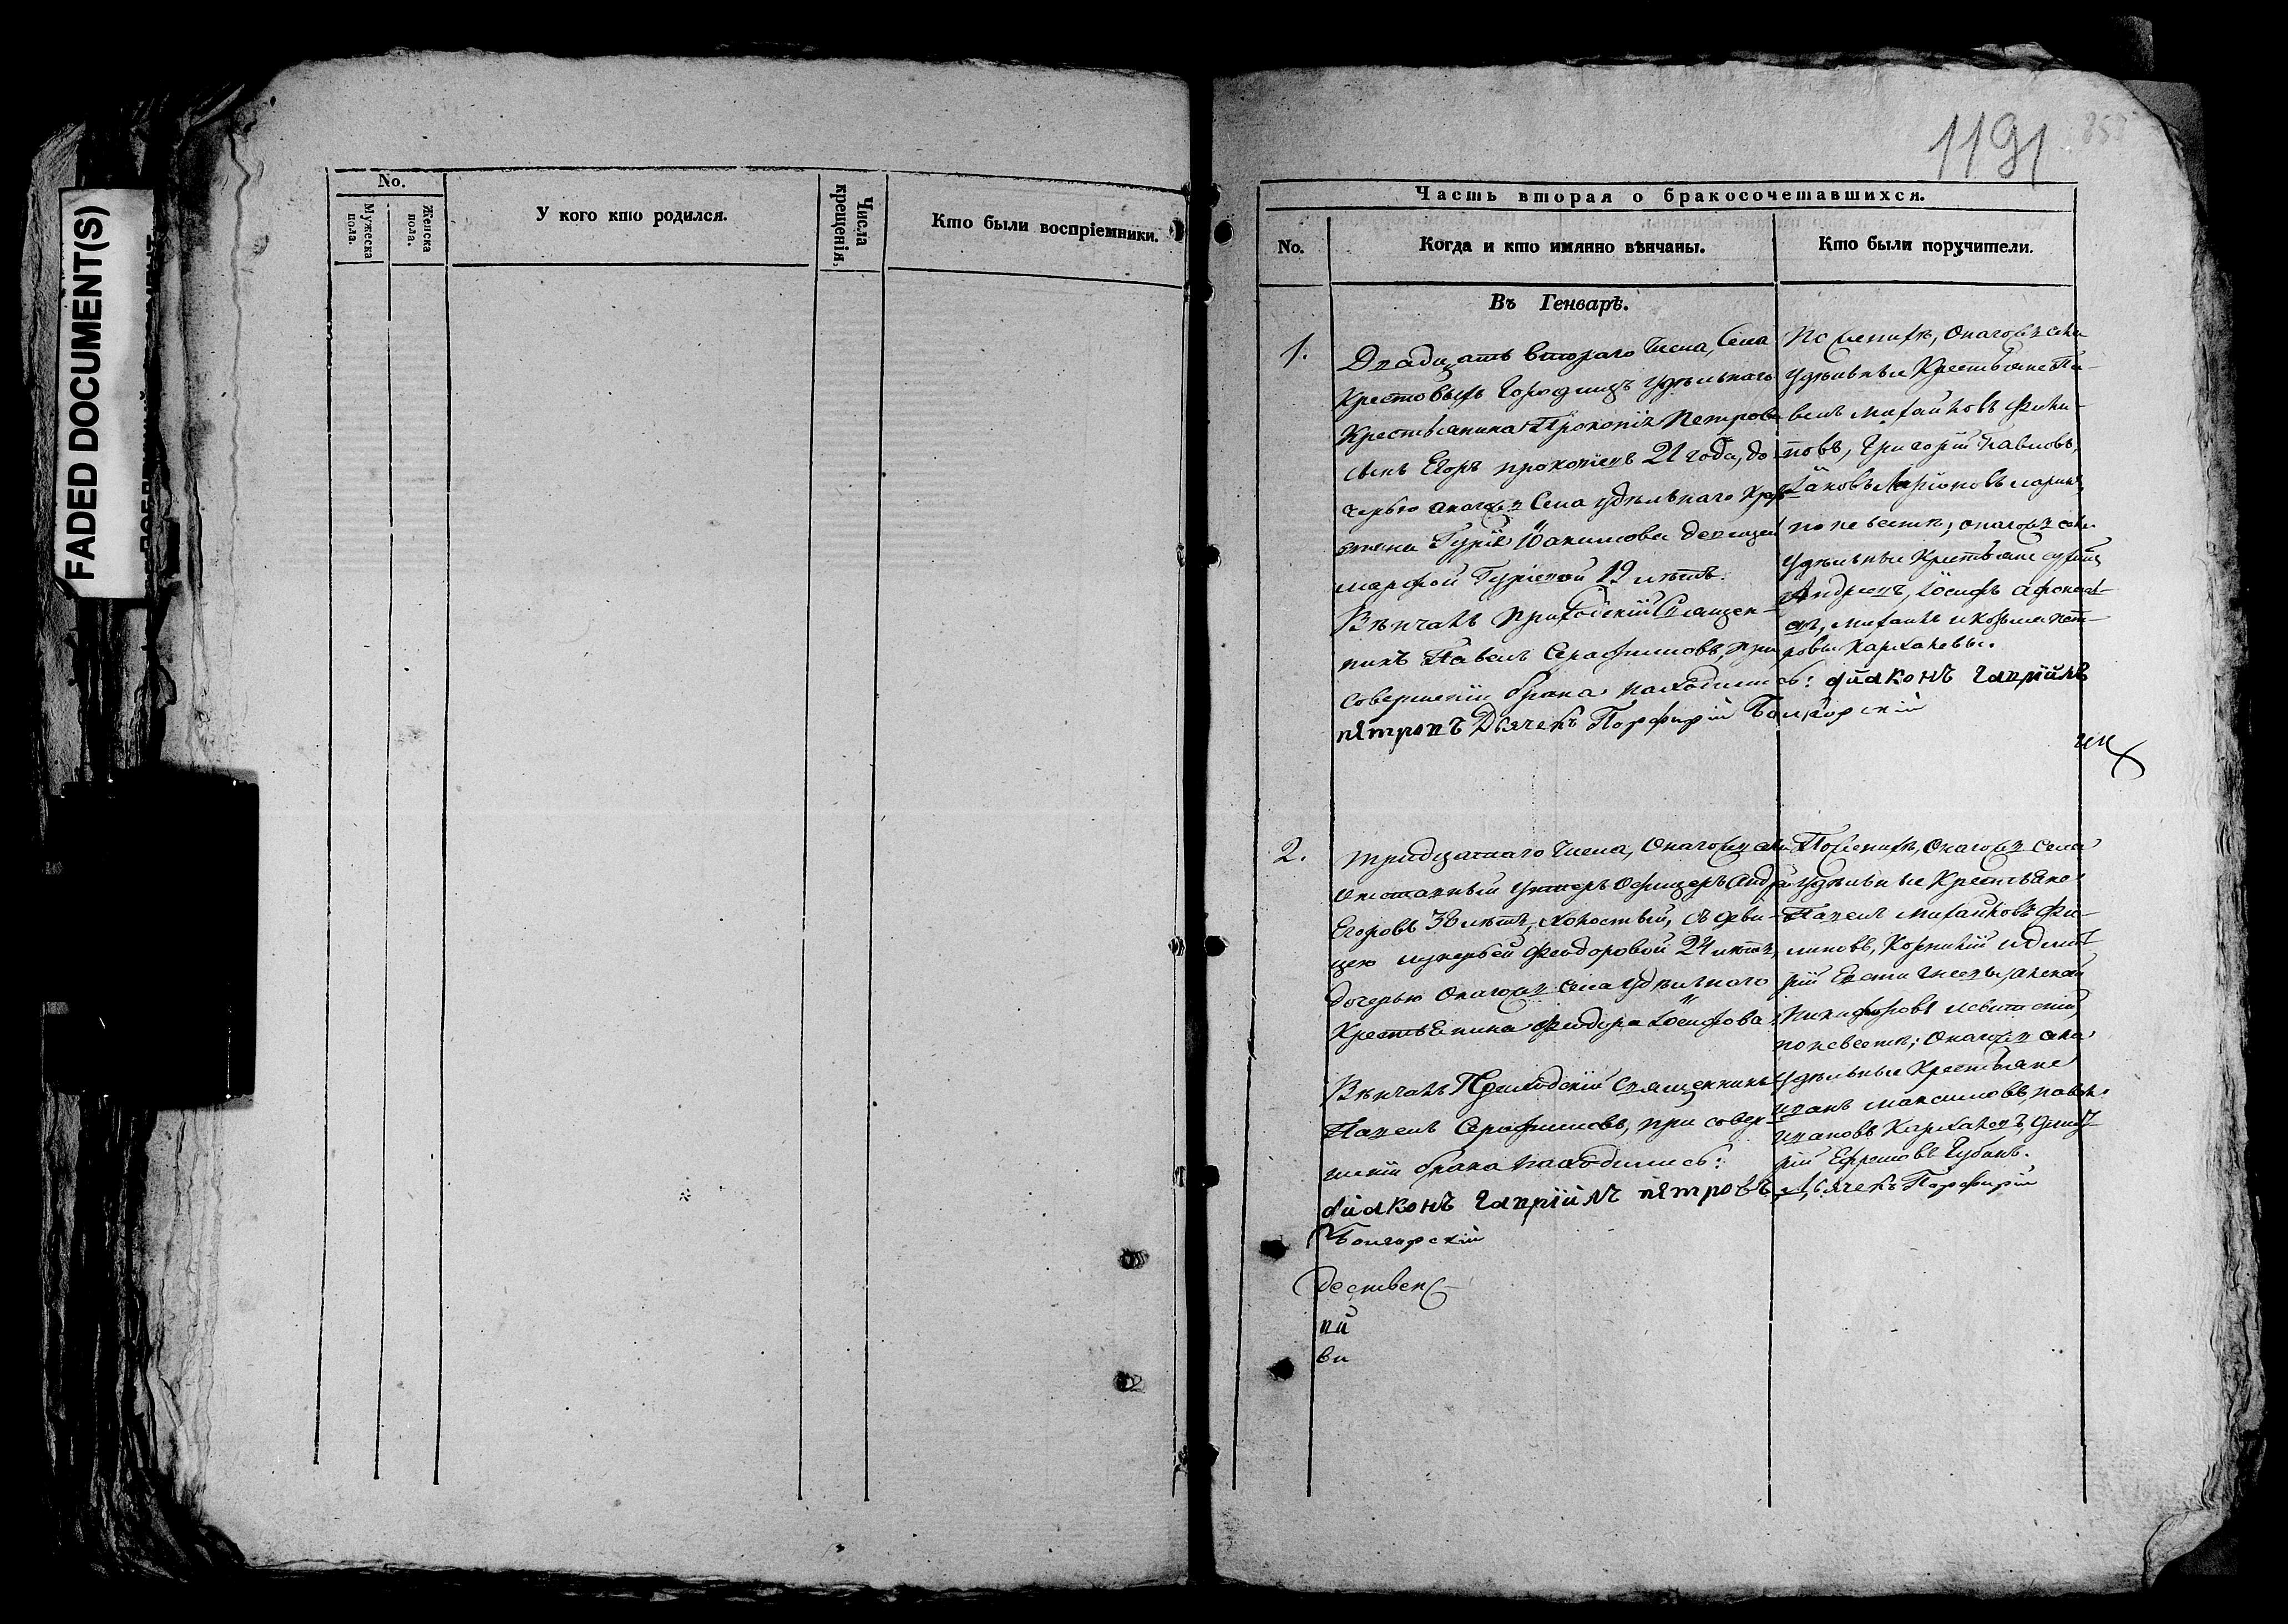 FADED DOCUMENT(S)
No.
Мужеска пола.
Женска пола.
У кого кто родился.
Числа крещенія,
Кто были воспріемники.
1191
Часть вторая о бракосочетавшихся.
No.
Когда и кто имянно вѣнчаны.
Кто были поручители.
Въ Генварѣ.
1.
Двадцать втораго числа, Села
Крестовыхъ Городищъ удѣльнаго
Крестьянина Прокопія Петрова
сынъ Егоръ Прокопіевъ 21 года, до
черью онагожъ Села удѣльнаго
Гурія Іоакимова девицей
марфой Гуріевой 19 лѣтъ.
Вѣнчалъ Приходскій Священ-
никъ Павелъ Серафимовъ, при
совершеніи брака находились: діаконъ гавріилъ
пѣтровъ Дьячекъ Порфирій Болгарскій
По женихѣ, Онагожъ села
удѣльные Крестьяне Па-
велъ Михайловъ Фили-
повъ, Григорій Павловъ,
Іаковъ Ларіоновъ
по невестѣ; онагожъ села
удѣльные Крестьяне
Андреевъ, Іосифъ Афонась-
евъ, михаилъ и Козьма Пет-
ровы Кархалевы.
2.
тридцатаго числа, Онагожъ села
отставный унтеръ Офицеръ Андрей
Егоровъ 38 лѣтъ, холостый, съ деви-
цею лукерьей Феодоровой 24 лѣтъ,
дочерью Онагожъ села удѣльнаго
Крестьянина Феодора Іосифова.
Вѣнчалъ Приходскій Священникъ
Павелъ Серафимовъ, при совер-
шеніи брака находились:
діаконъ гавріилъ пѣтровъ, Дьячекъ Порфирій
Болгарскій
По женихѣ, Онагожъ села
удѣльные Крестьяне
Павелъ михайловъ Фи-
липовъ, Корнилій и Дмит-
рій
Никифоровъ Левитскій,
по невестѣ; Онагожъ села
удѣльные Крестьяне
иванъ максимовъ, павелъ
ивановъ Кархалевъ, Дмит-
рій Ефремовъ Губанъ.
дественс-
ви